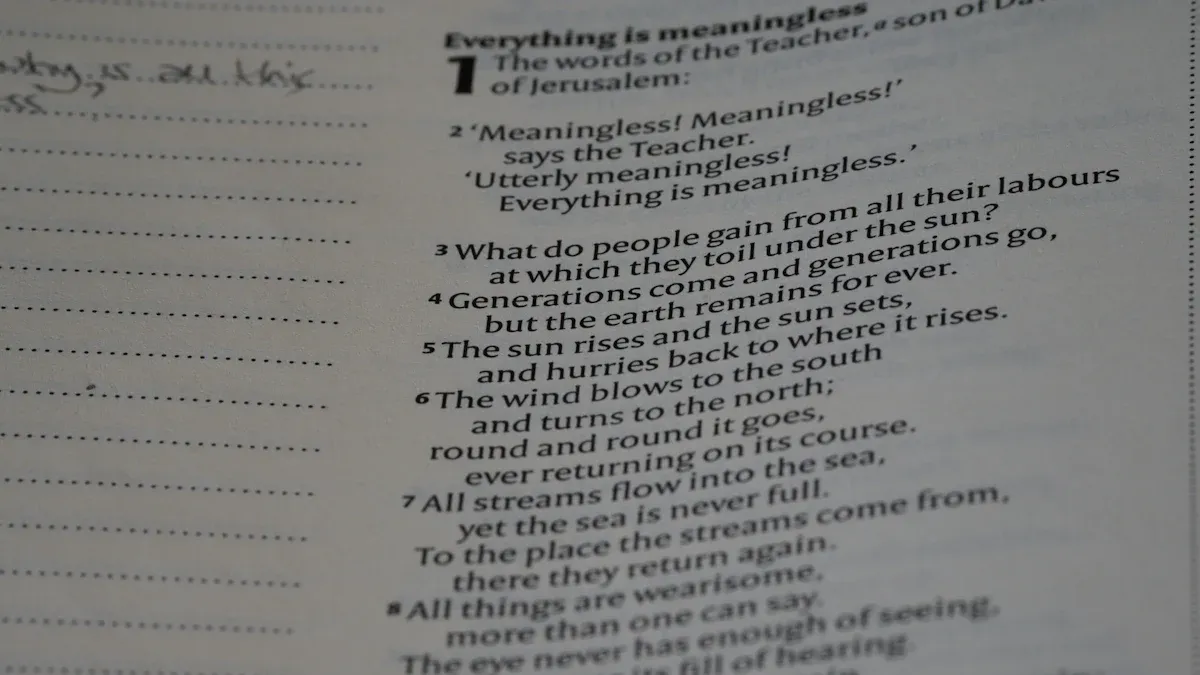 is all this
Everything is meaningless
1 The words of the Teacher, a son of
of Jerusalem:
2 ‘Meaningless! Meaningless!’
says the Teacher.
‘Utterly meaningless!
Everything is meaningless.’
3 What do people gain from all their labours
at which they toil under the sun?
4 Generations come and generations go,
but the earth remains for ever.
5 The sun rises and the sun sets,
and hurries back to where it rises.
6 The wind blows to the south
and turns to the north;
round and round it goes,
ever returning on its course.
7 All streams flow into the sea,
yet the sea is never full.
To the place the streams come from,
there they return again.
8 All things are wearisome,
more than one can say.
The eye never has enough of seeing,
its fill of hearing.